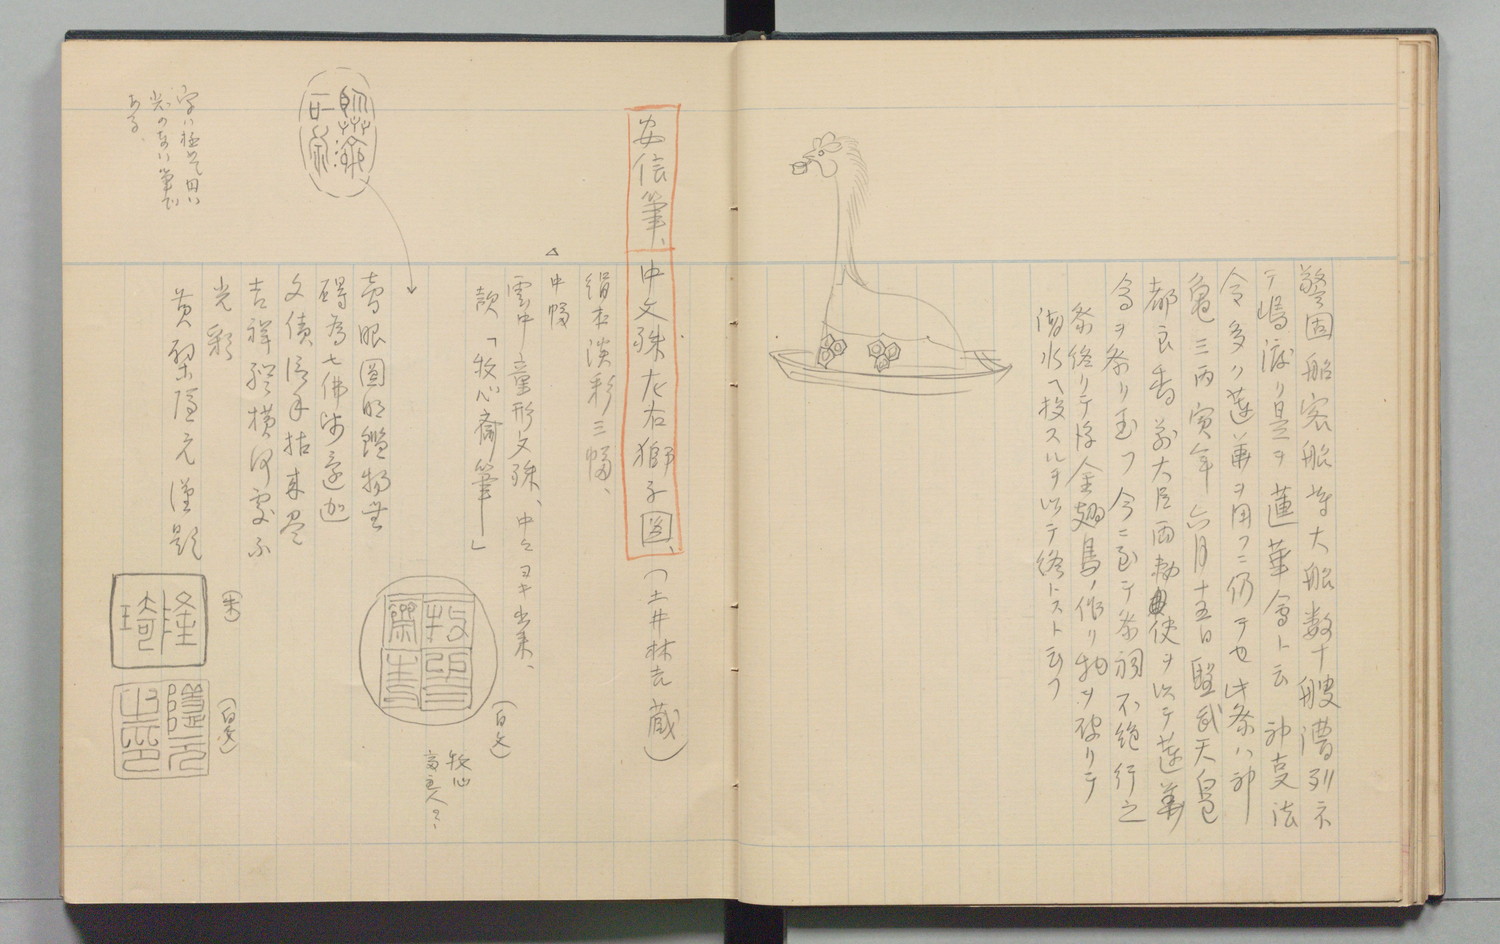 警固船客船等大船数十艘漕列示
テ嶋渡り是ヲ蓮華會ト云 神変法
令多ク蓮華ヲ用フニ仍テ也 此祭ハ神
亀三丙寅年六月十五日聖武天皇
都良香前大臣両勅使ヲ以テ蓮華
會ヲ祭リ玉フ 今ニ至テ祭祠不絶行之
祭終リテ後金翅鳥ノ作リ物ヲ破リテ
海水ヘ投スルヲ以テ終トスト云フ
安信筆、中文殊左右獅子圖、(土井林吉蔵)
絹本淡彩三幅、
中幅
雲中童形文殊、中々ヨキ出来、
款「牧心齋筆」
(白文)
牧心
齋
眼圖明鑑物無
碍為七佛師迦
文債信手拈来尽
吉祥縦横何處不
光彩
黄檗隠元謹題
(朱)
隆琦
(白文)
隠元之印
字ハ極めて固い
光のない筆で
ある。